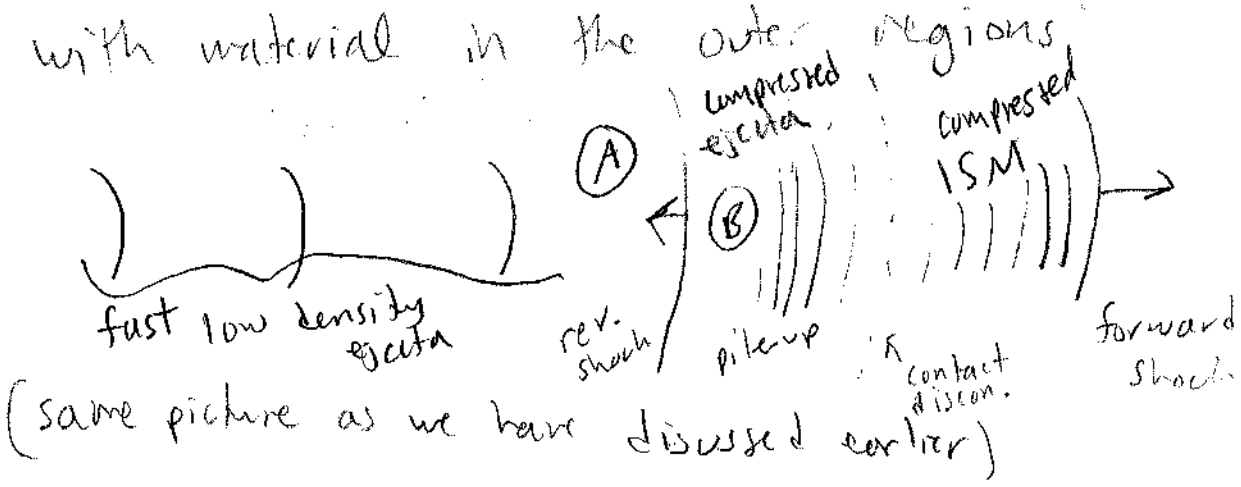 with material in the outer regions
compressed
ejecta
compressed
ISM
A
B
fast low density
ejecta
rev.
shock
pile-up
contact
discon.
forward
shock
(same picture as we have discussed earlier)